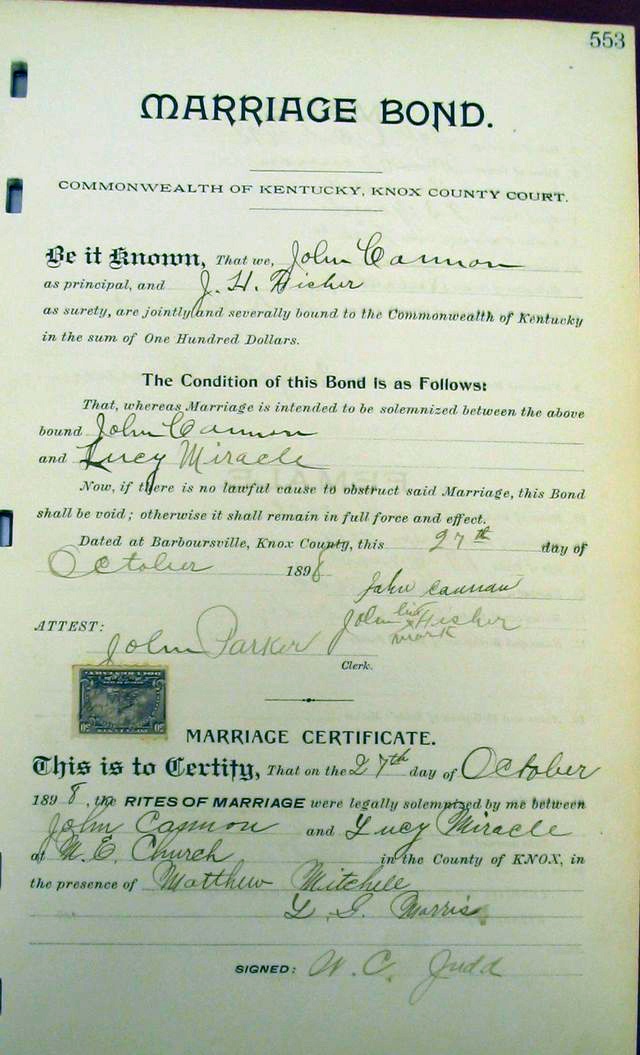 553
MARRIAGE BOND.
COMMONWEALTH OF KENTUCKY, KNOX COUNTY COURT.
Be it Known, That we, John Cannon
as principal, and J. H. Hisher
as surety, are jointly and severally bound to the Commonwealth of Kentucky
in the sum of One Hundred Dollars.
The Condition of this Bond is as Follows:
That, whereas Marriage is intended to be solemnized between the above
bound John Cannon
and Lucy Miracle
Now, if there is no lawful cause to obstruct said Marriage, this Bond
shall be void; otherwise it shall remain in full force and effect.
Dated at Barboursville, Knox County, this 27th day of
October 1898
John Cannon
John his x mark Hisher
ATTEST:
John Parker
Clerk.
MARRIAGE CERTIFICATE.
This is to Certify, That on the 27th day of October
1898, the RITES OF MARRIAGE were legally solemnized by me between
John Cannon and Lucy Miracle
at M. E. Church in the County of KNOX, in
the presence of Matthew Mitchell
L. G. Morris
SIGNED: W. C. Judd